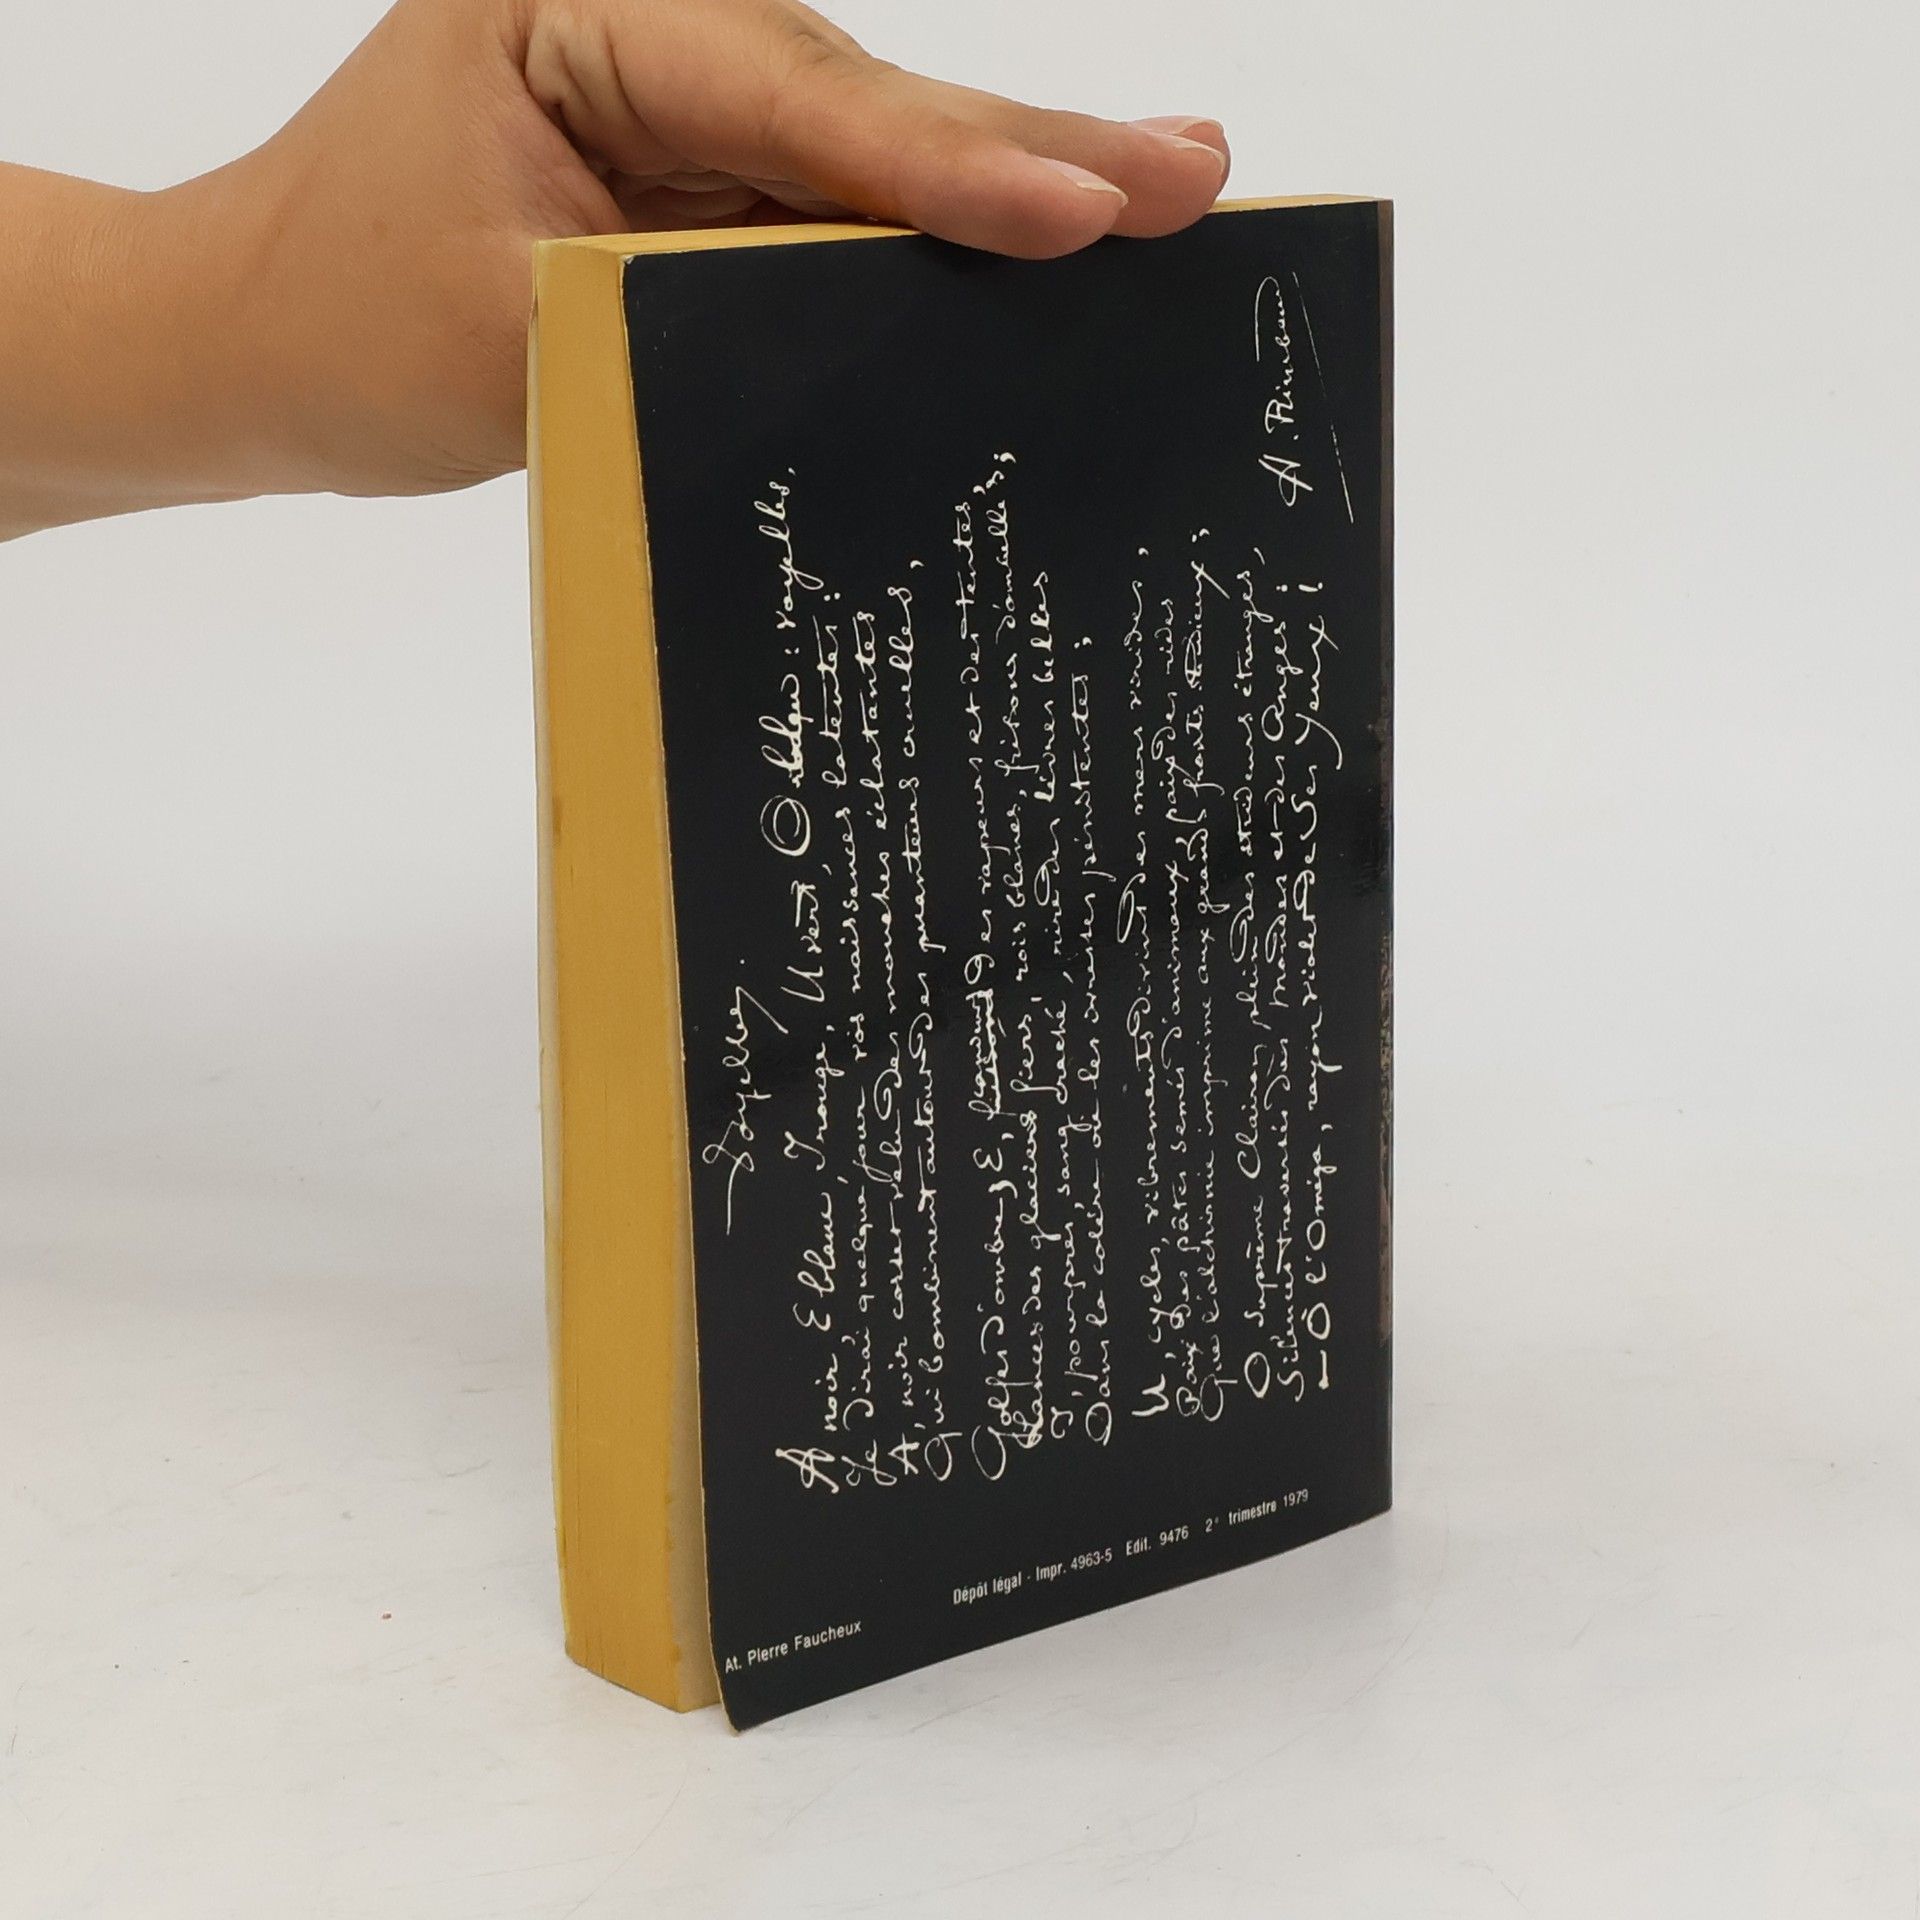 Voyelles.
A noir, E blanc, I rouge, U vert, O bleu : voyelles,
Je dirai quelque jour vos naissances latentes :
A, noir corset velu des mouches éclatantes
Qui bombinent autour des puanteurs cruelles,
Golfes d'ombre ; E, candeurs des vapeurs et des tentes,
Lances des glaciers fiers, rois blancs, frissons d'ombelles ;
I, pourpres, sang craché, rire des lèvres belles
Dans la colère ou les ivresses pénitentes ;
U, cycles, vibrements divins des mers virides,
Paix des pâtis semés d'animaux, paix des rides
Que l'alchimie imprime aux grands fronts studieux ;
O, suprême Clairon plein des strideurs étranges,
Silences traversés des Mondes et des Anges :
— O l'Oméga, rayon violet de Ses Yeux !
A. Rimbaud
At. Pierre Faucheux
Dépôt légal - Impr. 4963-5 Edit. 9476 2e trimestre 1979